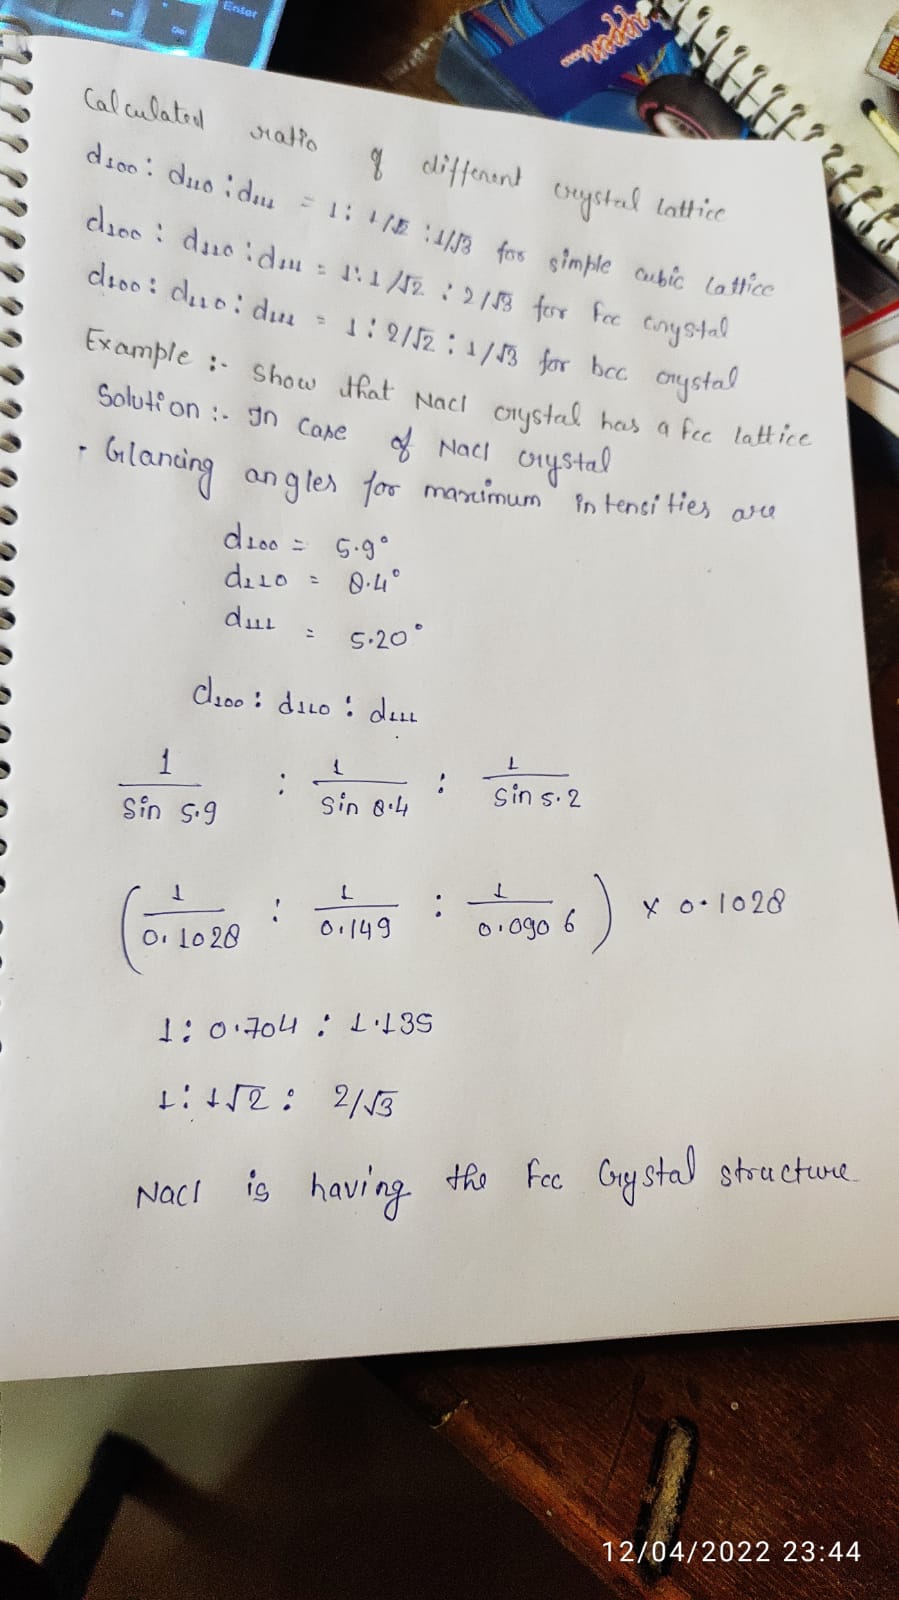 Enter
Calculated ratio of different crystal lattice
d100 : d110 : d111 = 1 : 1/√2 : 1/√3 for simple cubic lattice
d100 : d110 : d111 = 1 : 1/√2 : 2/√3 for fcc crystal
d100 : d110 : d111 = 1 : 2/√2 : 1/√3 for bcc crystal
Example :- Show that Nacl crystal has a fcc lattice
Solution :- In case of Nacl crystal
· Glancing angles for maximum intensities are
d100 = 5.9°
d110 = 8.4°
d111 = 5.20°
d100 : d110 : d111
1/Sin 5.9 : 1/Sin 8.4 : 1/Sin 5.2
(1/0.1028 : 1/0.149 : 1/0.0906) × 0.1028
1 : 0.704 : 1.135
1 : 1√2 : 2/√3
Nacl is having the Fcc Crystal structure
12/04/2022 23:44